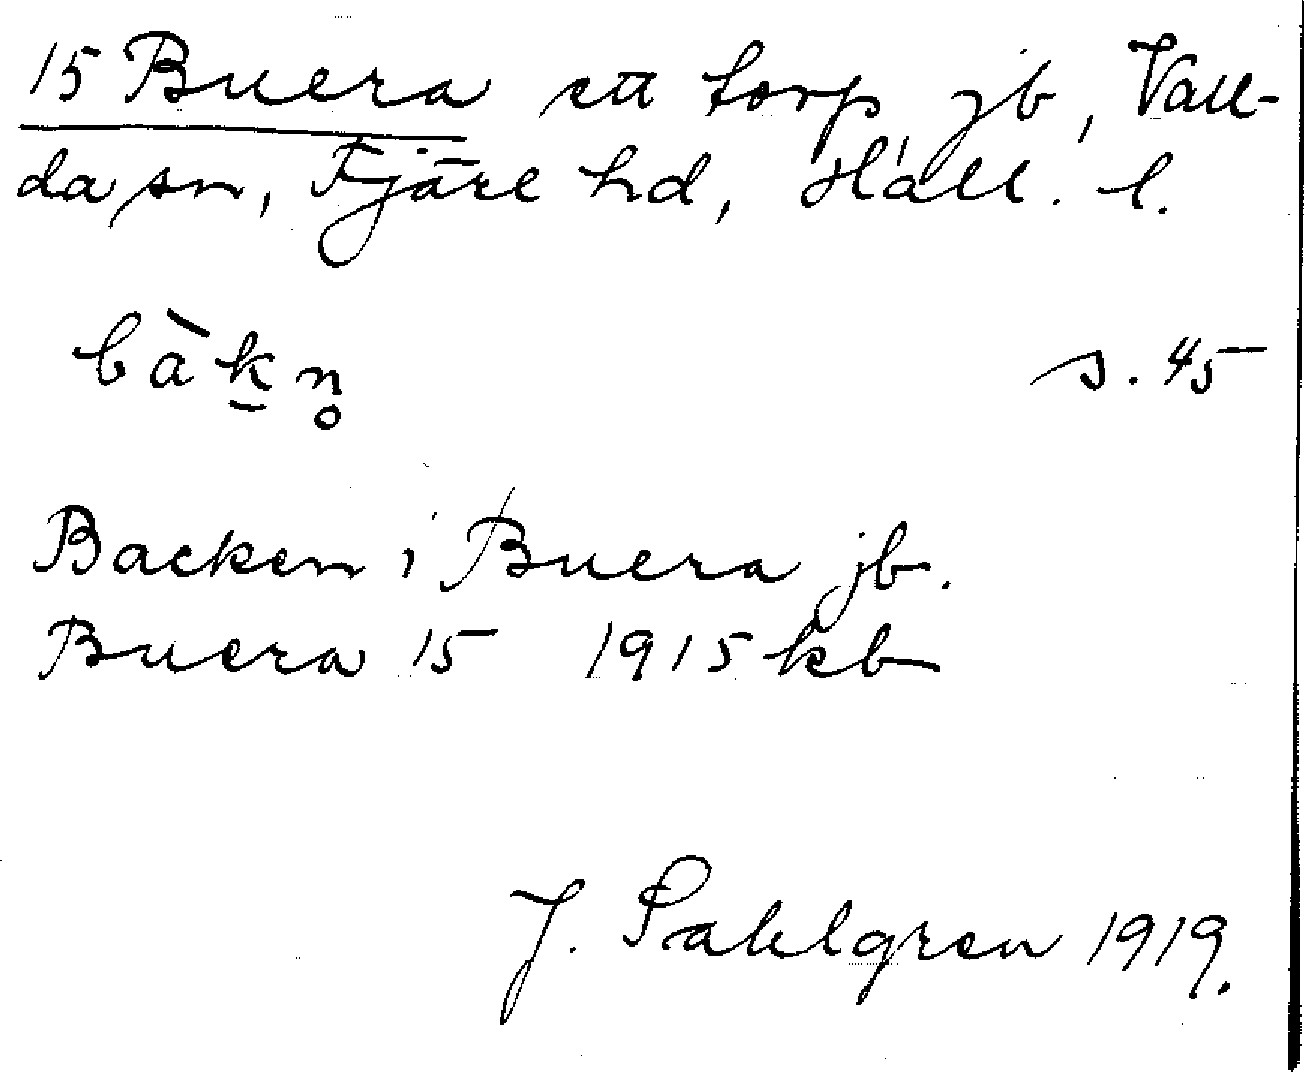 15 Buera ett torp jb, Vall-
da sn, Fjäre hd, Hall. l.
bàk̲n̥ s. 45
Backen i Buera jb.
Buera 15 1915 kb
J. Sahlgren 1919.